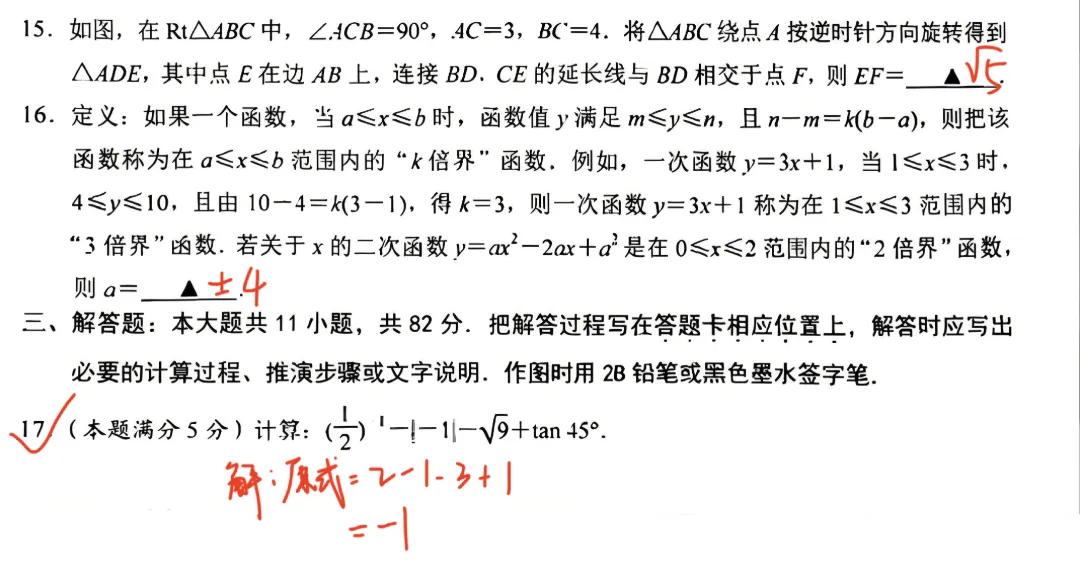 15. 如图，在 Rt△ABC 中，∠ACB=90°，AC=3，BC=4. 将△ABC 绕点 A 按逆时针方向旋转得到
△ADE，其中点 E 在边 AB 上，连接 BD. CE 的延长线与 BD 相交于点 F，则 EF= ▲ √5.
16. 定义：如果一个函数，当 a≤x≤b 时，函数值 y 满足 m≤y≤n，且 n−m=k(b−a)，则把该
函数称为在 a≤x≤b 范围内的“k 倍界”函数. 例如，一次函数 y=3x+1，当 1≤x≤3 时，
4≤y≤10，且由 10−4=k(3−1)，得 k=3，则一次函数 y=3x+1 称为在 1≤x≤3 范围内的
“3 倍界”函数. 若关于 x 的二次函数 y=ax²−2ax+a² 是在 0≤x≤2 范围内的“2 倍界”函数，
则 a= ▲ ±4.
三、解答题：本大题共 11 小题，共 82 分. 把解答过程写在答题卡相应位置上，解答时应写出
必要的计算过程、推演步骤或文字说明. 作图时用 2B 铅笔或黑色墨水签字笔.
17.（本题满分 5 分）计算：(1/2)⁻¹−|−1|−√9+tan 45°.
解：原式=2−1−3+1
=−1